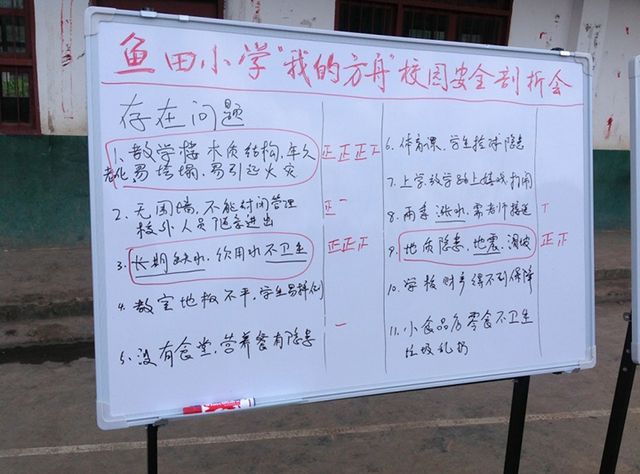 鱼田小学"我的方舟"校园安全剖析会
存在问题
1、教学楼木质结构,年久 正正正正
老化易坍塌,易引起火灾
2、无围墙,不能封闭管理 正一
校外人员随意进出
3、长期缺水,饮用水不卫生 正正正
4、教室地板不平,学生易摔倒
5、没有食堂,营养餐有隐患 一
6、体育课,学生抢球隐患
7、上学放学路上嬉戏打闹
8、雨季涨水,需老师接送 丅
9、地质隐患,地震、滑坡 正正
10、学校财产得不到保障
11、小食品店零食不卫生
垃圾乱扔